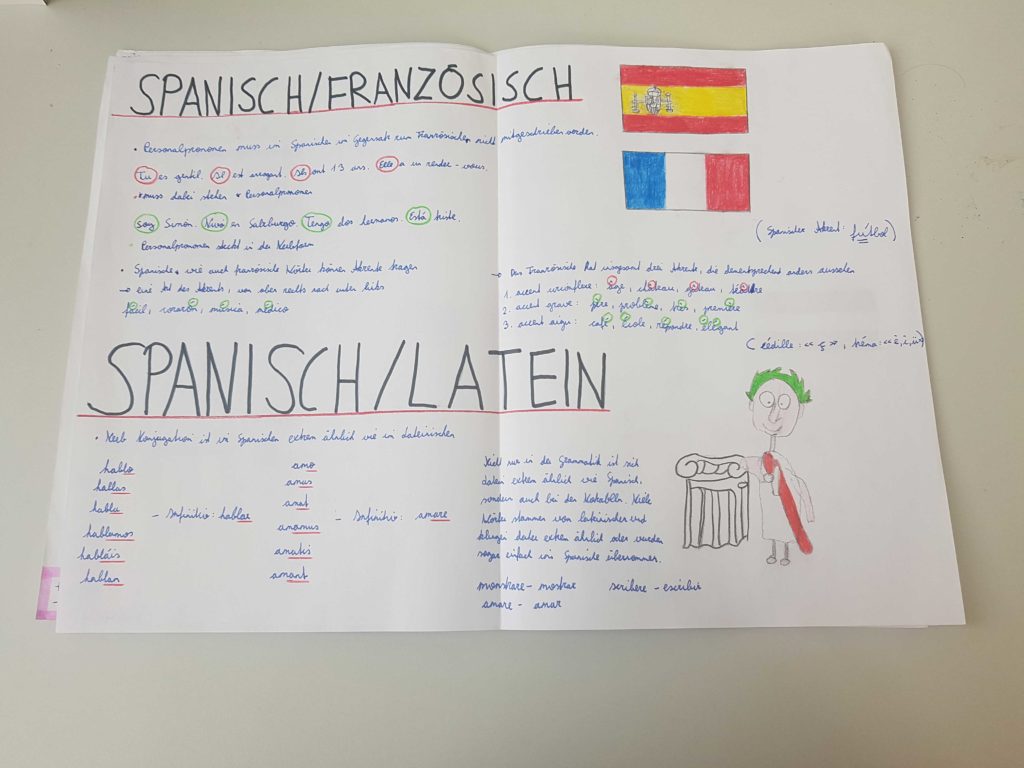 SPANISCH/FRANZÖSISCH
• Personalpronomen muss im Spanischen im Gegensatz zum Französischen nicht mitgeschrieben werden.
Tu es gentil. Il est arrogant. Ils ont 13 ans. Elle a un rendez-vous.
* muss dabei stehen * Personalpronomen
Soy Simón. Vivo en Salzburgo. Tengo dos hermanos. Está triste.
Personalpronomen steckt in der Verbform
(Spanischer Akzent: fútbol)
• Spanische, wie auch französische Wörter können Akzente tragen
→ eine Art des Akzents, von oben rechts nach unten links
fácil, corazón, música, médico
→ Das Französische hat insgesamt drei Akzente, die dementsprechend anders aussehen
1. accent circonflexe: âge, château, gâteau,
2. accent grave: père, problème, très, première
3. accent aigu: café, école, répondre, élégant
(cédille: «ç», tréma: «ë, ï, ü»)
SPANISCH/LATEIN
• Verb Konjugation ist im Spanischen extrem ähnlich wie im Lateinischen
hablo
hablas
habla
hablamos
habláis
hablan
– Infinitiv: hablar
amo
amas
amat
amamus
amatis
amant
– Infinitiv: amare
Nicht nur in der Grammatik ist sich
Latein extrem ähnlich wie Spanisch,
sondern auch bei den Vokabeln. Viele
Wörter stammen vom lateinischen und
klingen daher extrem ähnlich oder wurden
sogar einfach ins Spanische übernommen.
monstrare – mostrar scribere – escribir
amare – amar